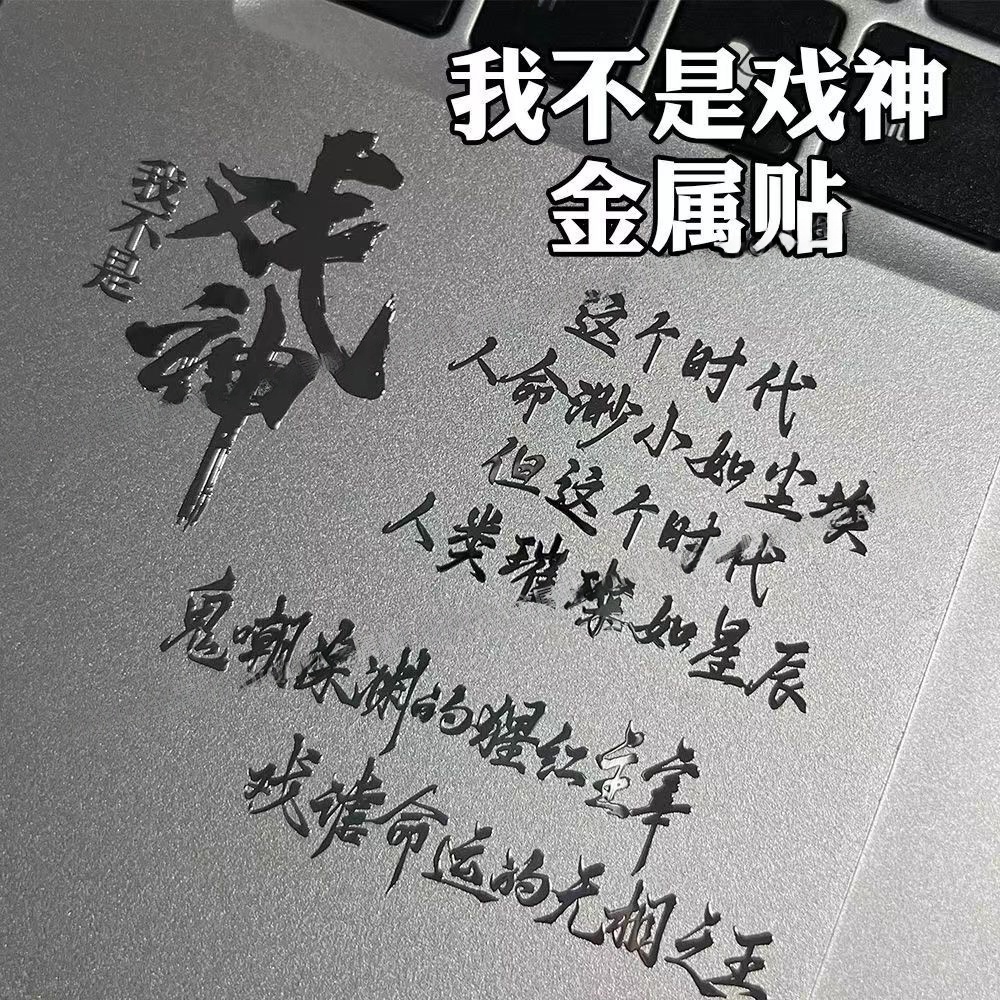 我不是戏神
金属贴
我不是
戏神
这个时代
人命渺小如尘埃
但这个时代
人类璀璨如星辰
鬼嘲深渊的猩红主宰
戏谑命运的无相之王